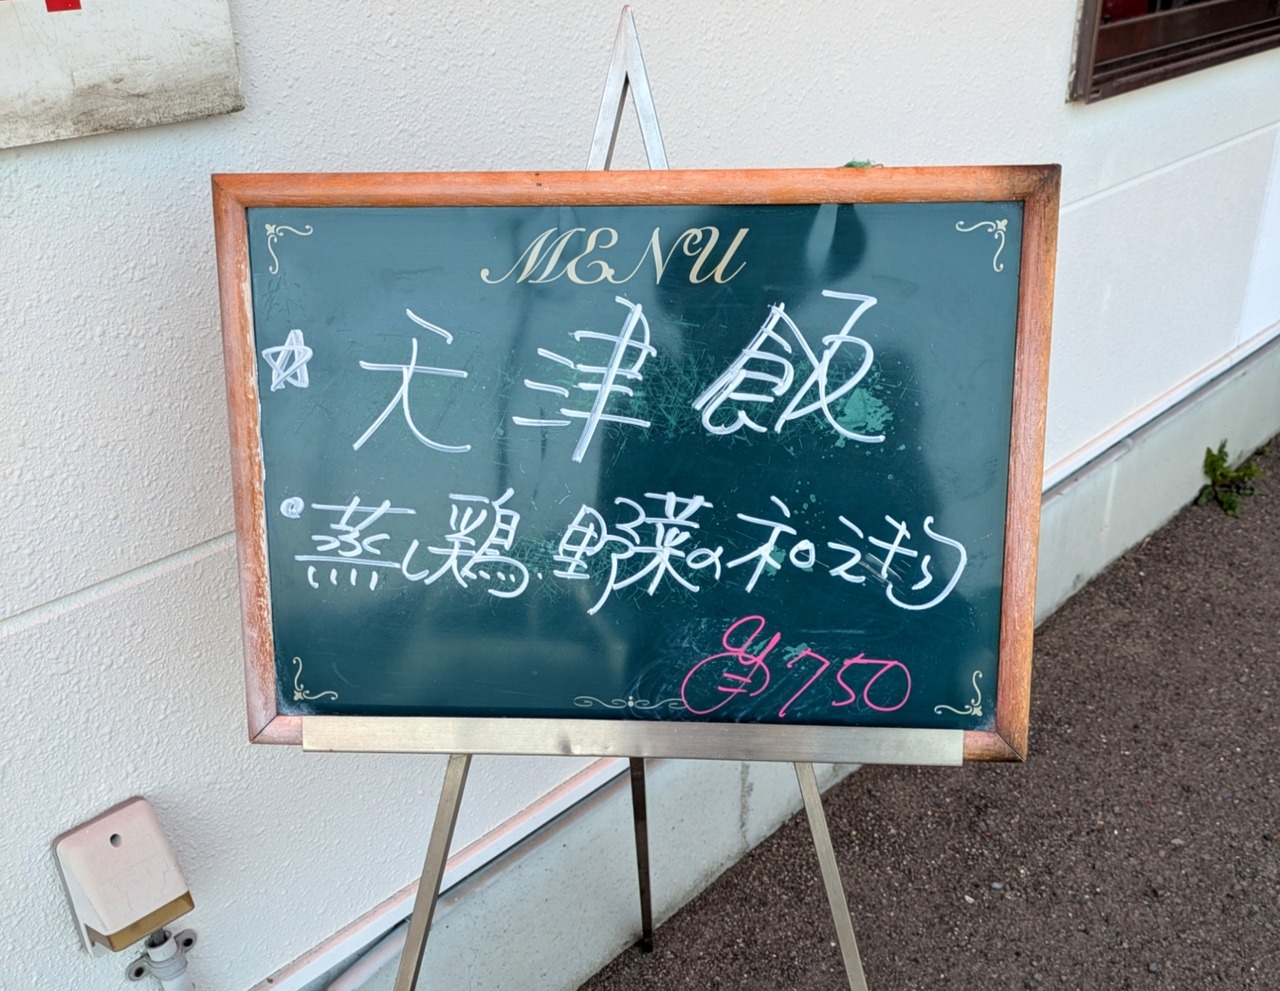 MENU
☆ 天津飯
• 蒸し鶏、野菜の和えもの
¥750